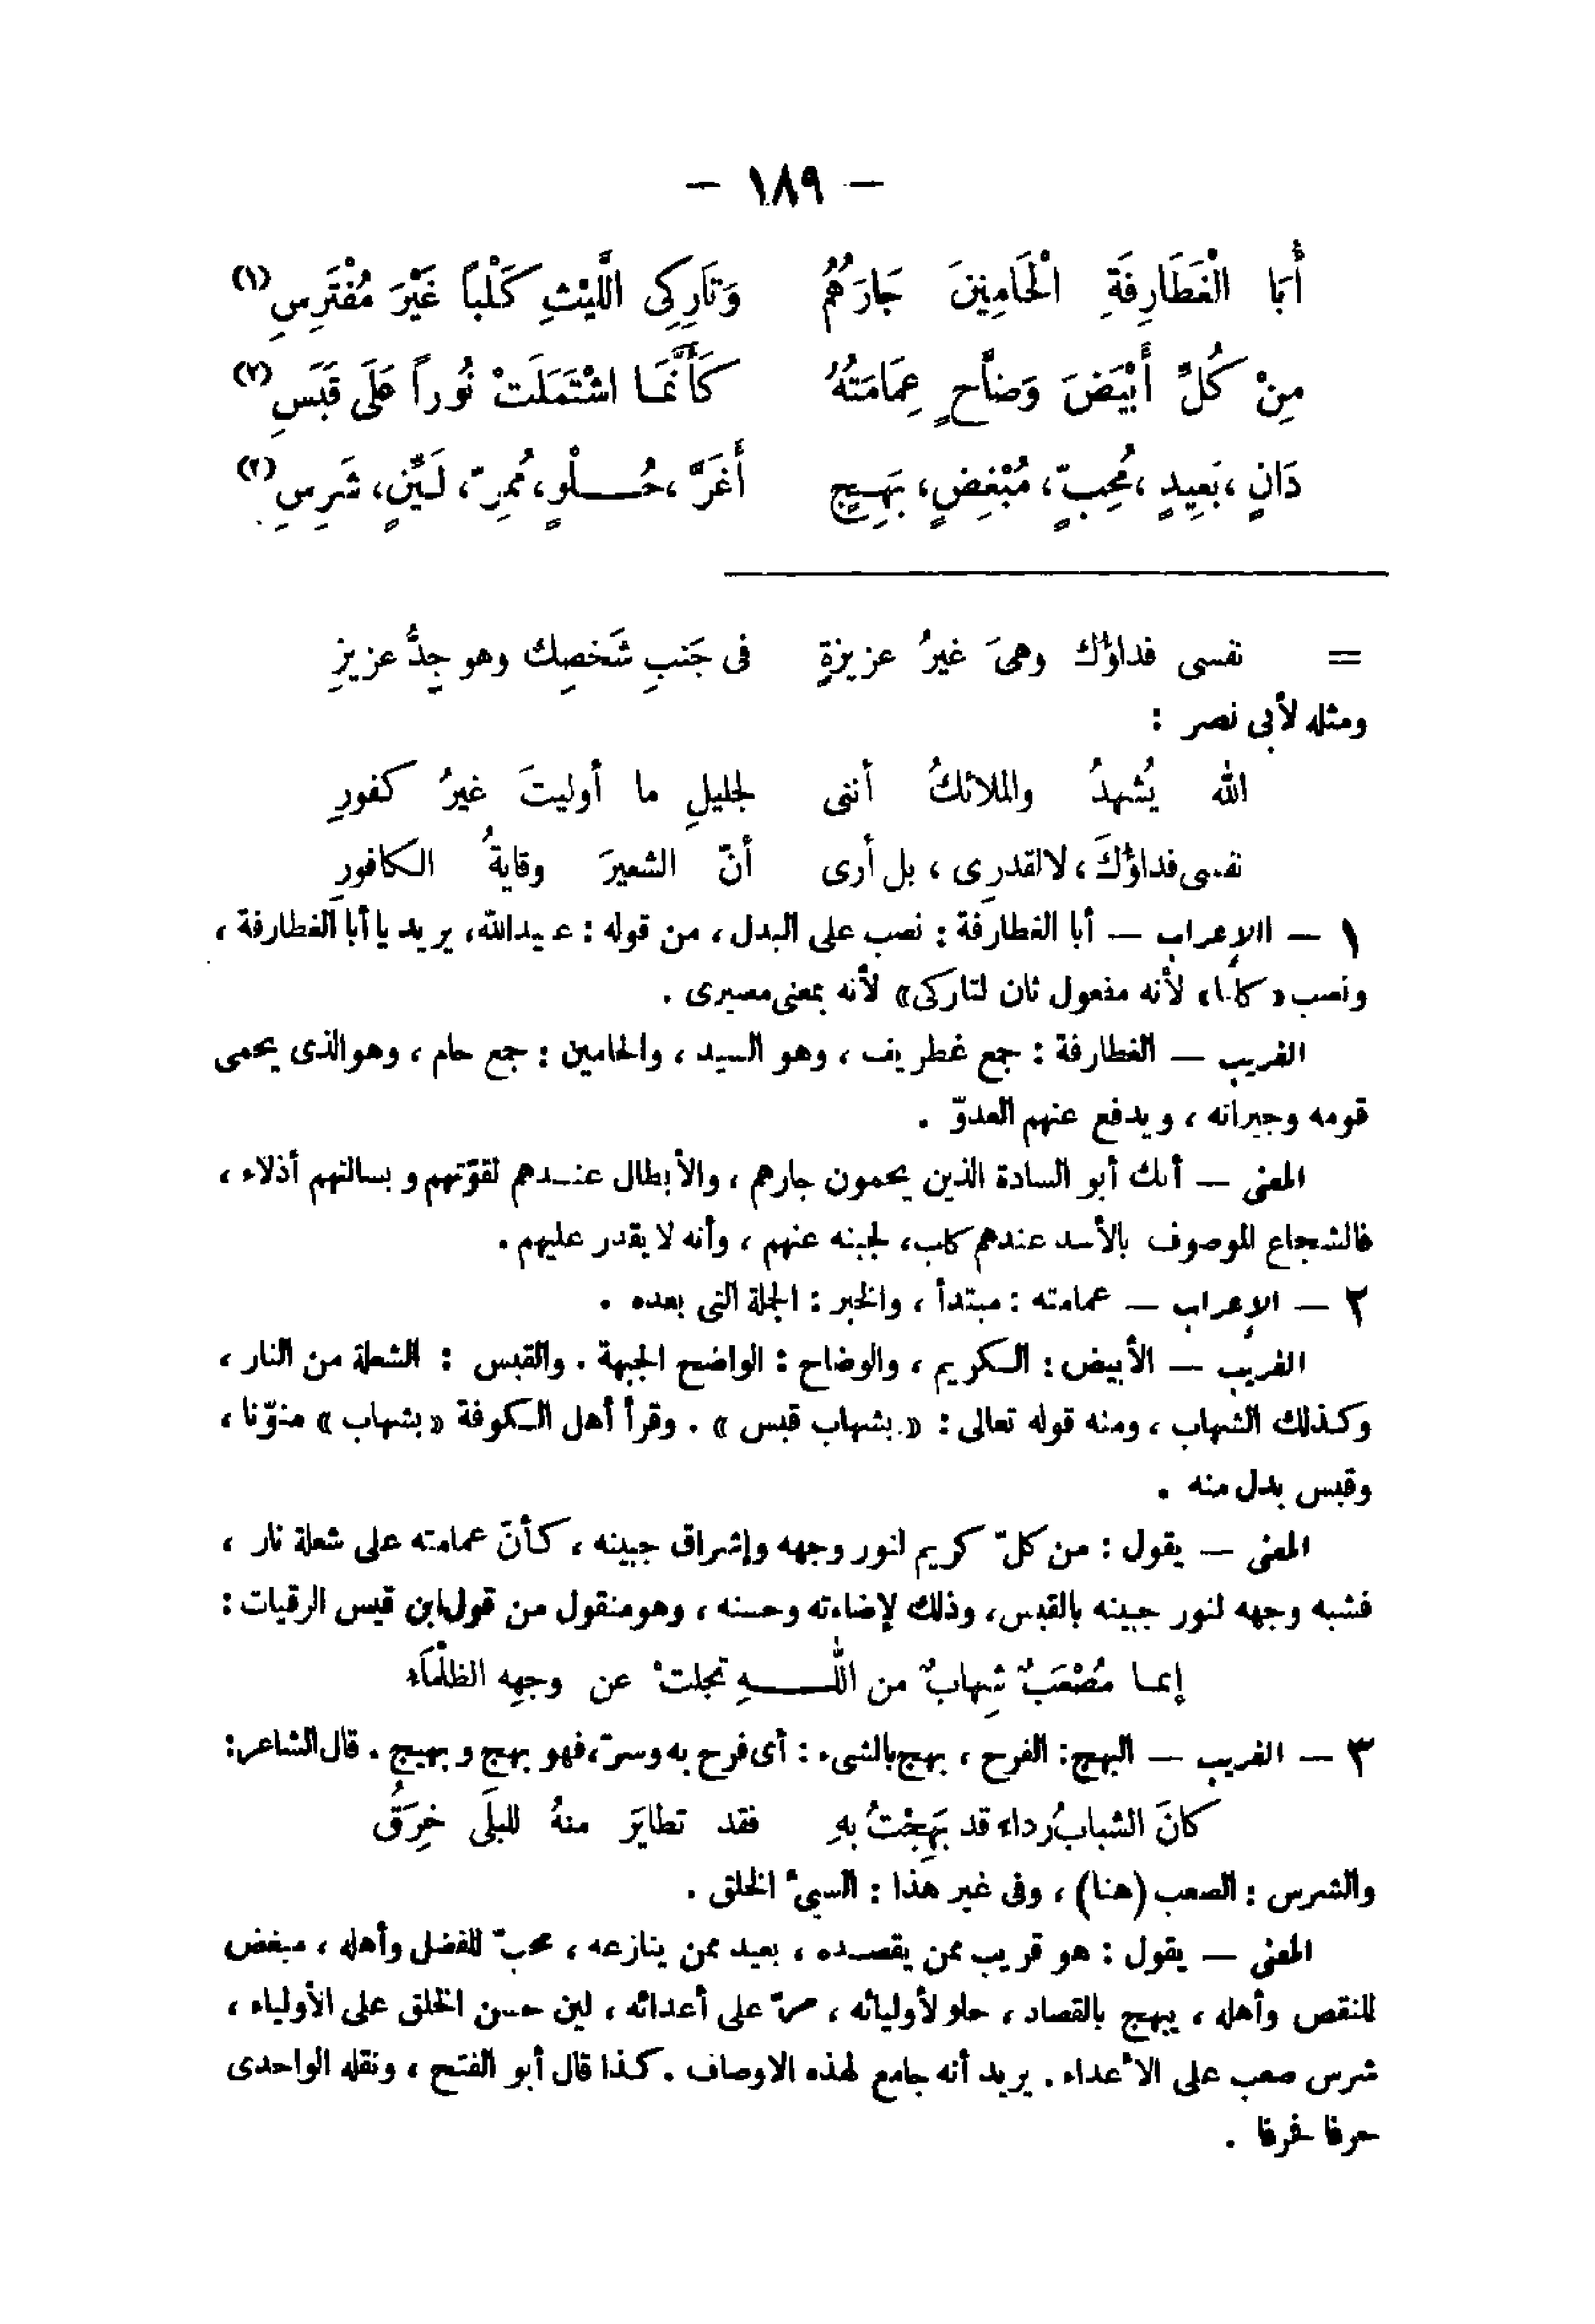 — ١٨٩ —
أَبَا الْغَطَارِفَةِ الْحَامِينَ جَارَهُمُ وَتَارِكِى اللَّيْثِ كَلْباً غَيْرَ مُفْتَرِسِ (١)
مِنْ كُلِّ أَبْيَضَ وَضَّاحٍ عِمَامَتُهُ كَأَنَّمَا اشْتَمَلَتْ نُوراً عَلَى قَبَسِ (٢)
دَانٍ، بَعِيدٍ، مُحِبٍّ، مُبْغِضٍ، بَهِجٍ أَغَرَّ، حُلْوٍ، مُمِرٍّ، لَيِّنٍ، شَرِسِ (٣)
= نفسى فداؤك وهىَ غيرُ عزيزةٍ فى جَنبِ شَخصِك وهو جِدُّ عزيزِ
ومثله لأبى نصر :
الله يُشهدُ والملائكُ أننى لجليلِ ما أوليتَ غيرُ كفورِ
نفسى فداؤكَ، لا لقدرِى ، بل أرى أنّ الشعيرَ وقايةُ الكافورِ
١ — الإعراب — أبا الغطارفة : نصب على البدل ، من قوله : عبيدالله، يريد يا أبا الغطارفة ،
ونصب «كلبا» لأنه مفعول ثان لتاركى» لأنه بمعنى مصيرى .
الغريب — الغطارفة : جمع غطريف ، وهو السيد ، والحامين : جمع حام ، وهو الذى يحمى
قومه وجيرانه ، ويدفع عنهم العدوّ .
المعنى — أنك أبو السادة الذين يحمون جارهم ، والأبطال عندهم لقوّتهم وبسالتهم أذلاء ،
فالشجاع الموصوف بالأسد عندهم كلب، لجبنه عنهم ، وأنه لا يقدر عليهم .
٢ — الإعراب — عمامته : مبتدأ ، والخبر : الجملة التى بعده .
الغريب — الأبيض : الكريم ، والوضاح : الواضح الجبهة . والقبس : الشعلة من النار ،
وكذلك الشهاب ، ومنه قوله تعالى : « بشهاب قبس » . وقرأ أهل الكوفة «بشهاب» منوّنا ،
وقبس بدل منه .
المعنى — يقول : من كلّ كريم لنور وجهه وإشراق جبينه ، كأنّ عمامته على شعلة نار ،
فشبه وجهه لنور جبينه بالقبس، وذلك لإضاءته وحسنه ، وهو منقول من قول ابن قيس الرقيات :
إنما مُصْعَبٌ شِهابٌ من اللّـهِ تجلتْ عن وجهِه الظلْماَء
٣ — الغريب — البهج : الفرح ، بهج بالشىء : أى فرح به وسرّ، فهو بهج وبهيج . قال الشاعر :
كانَ الشبابُ رداء قد بَهِجْتُ بهِ فقد تطايَرَ منهُ للبلَى خِرَقُ
والشرس : الصعب (هنا) ، وفى غير هذا : السيئ الخلق .
المعنى — يقول : هو قريب ممن يقصده ، بعيد ممن ينازعه ، محبّ للفضل وأهله ، مبغض
للنقص وأهله ، يبهج بالقصاد ، حلو لأوليائه ، مرّ على أعدائه ، لين حسن الخلق على الأولياء ،
شرس صعب على الأعداء . يريد أنه جامع لهذه الاوصاف . كذا قال أبو الفتح ، ونقله الواحدى
حرفا فحرفا .